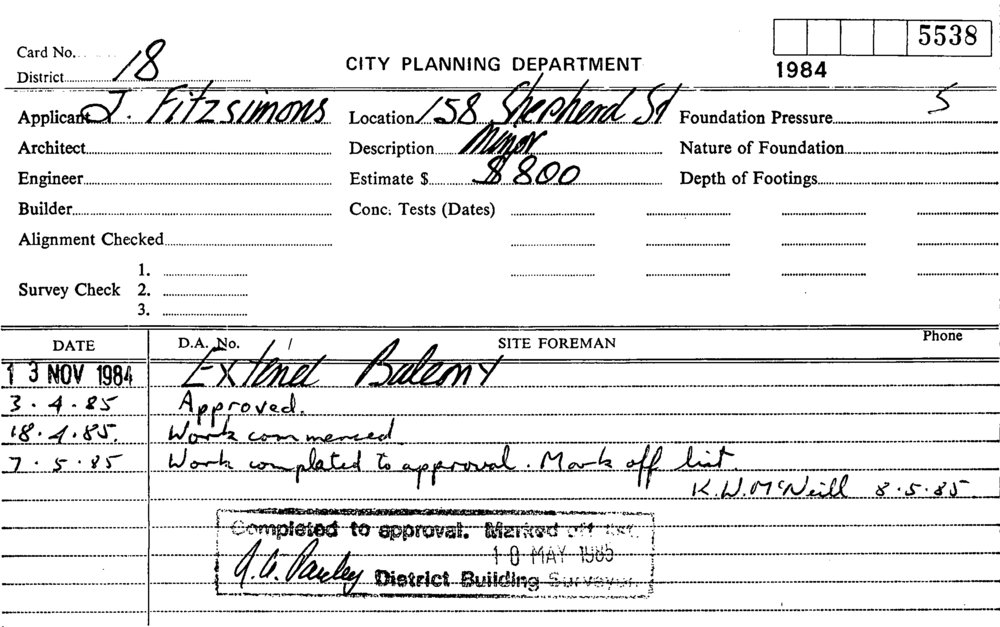 5538
Card No.
District 18
CITY PLANNING DEPARTMENT
1984
Applicant J. Fitzsimons Location 158 Shepherd St Foundation Pressure 5
Architect Description Minor Nature of Foundation
Engineer Estimate $ $800 Depth of Footings
Builder Conc. Tests (Dates)
Alignment Checked
1.
Survey Check 2.
3.
DATE D.A. No. / SITE FOREMAN Phone
13 NOV 1984 Extend Balcony
3.4.85 Approved.
18.4.85. Work commenced
7.5.85 Work completed to approval. Mark off list.
K.W. McNeill 8.5.85.
Completed to approval. Marked off list.
10 MAY 1985
District Building Surveyor.